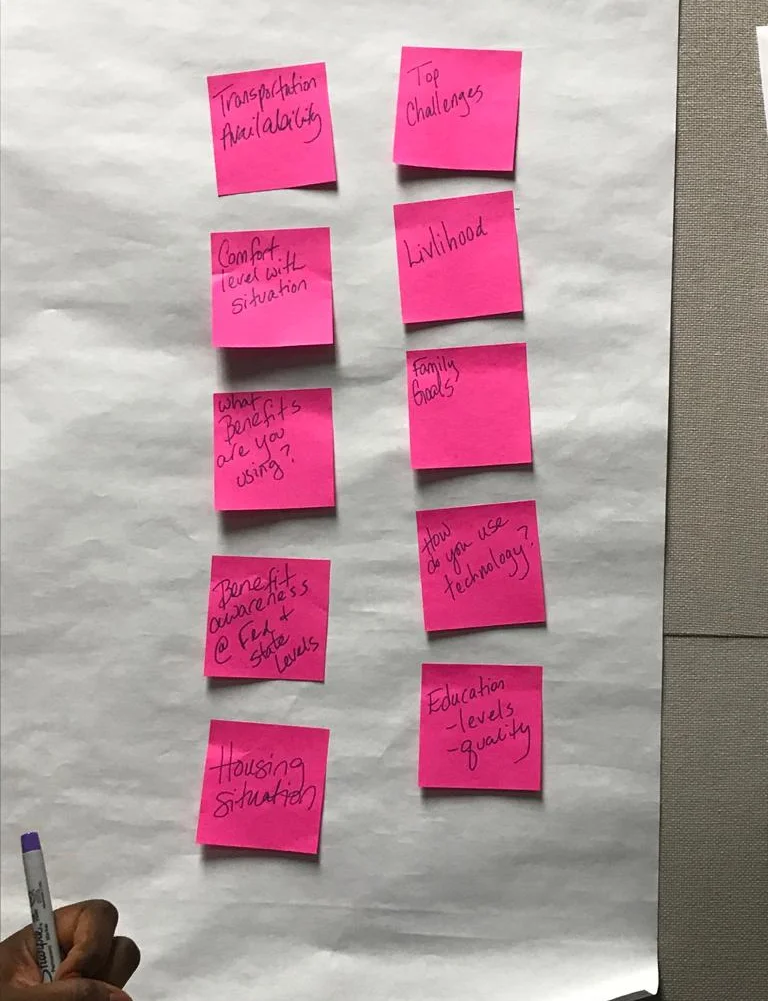 Transportation
Availability
Comfort
level with
situation
What
Benefits
are you
using?
Benefit
awareness
@ Fed +
State
Levels
Housing
situation
Top
Challenges
Livlihood
Family
Goals
How
do you use
technology?
Education
-levels
-quality
Sharpie